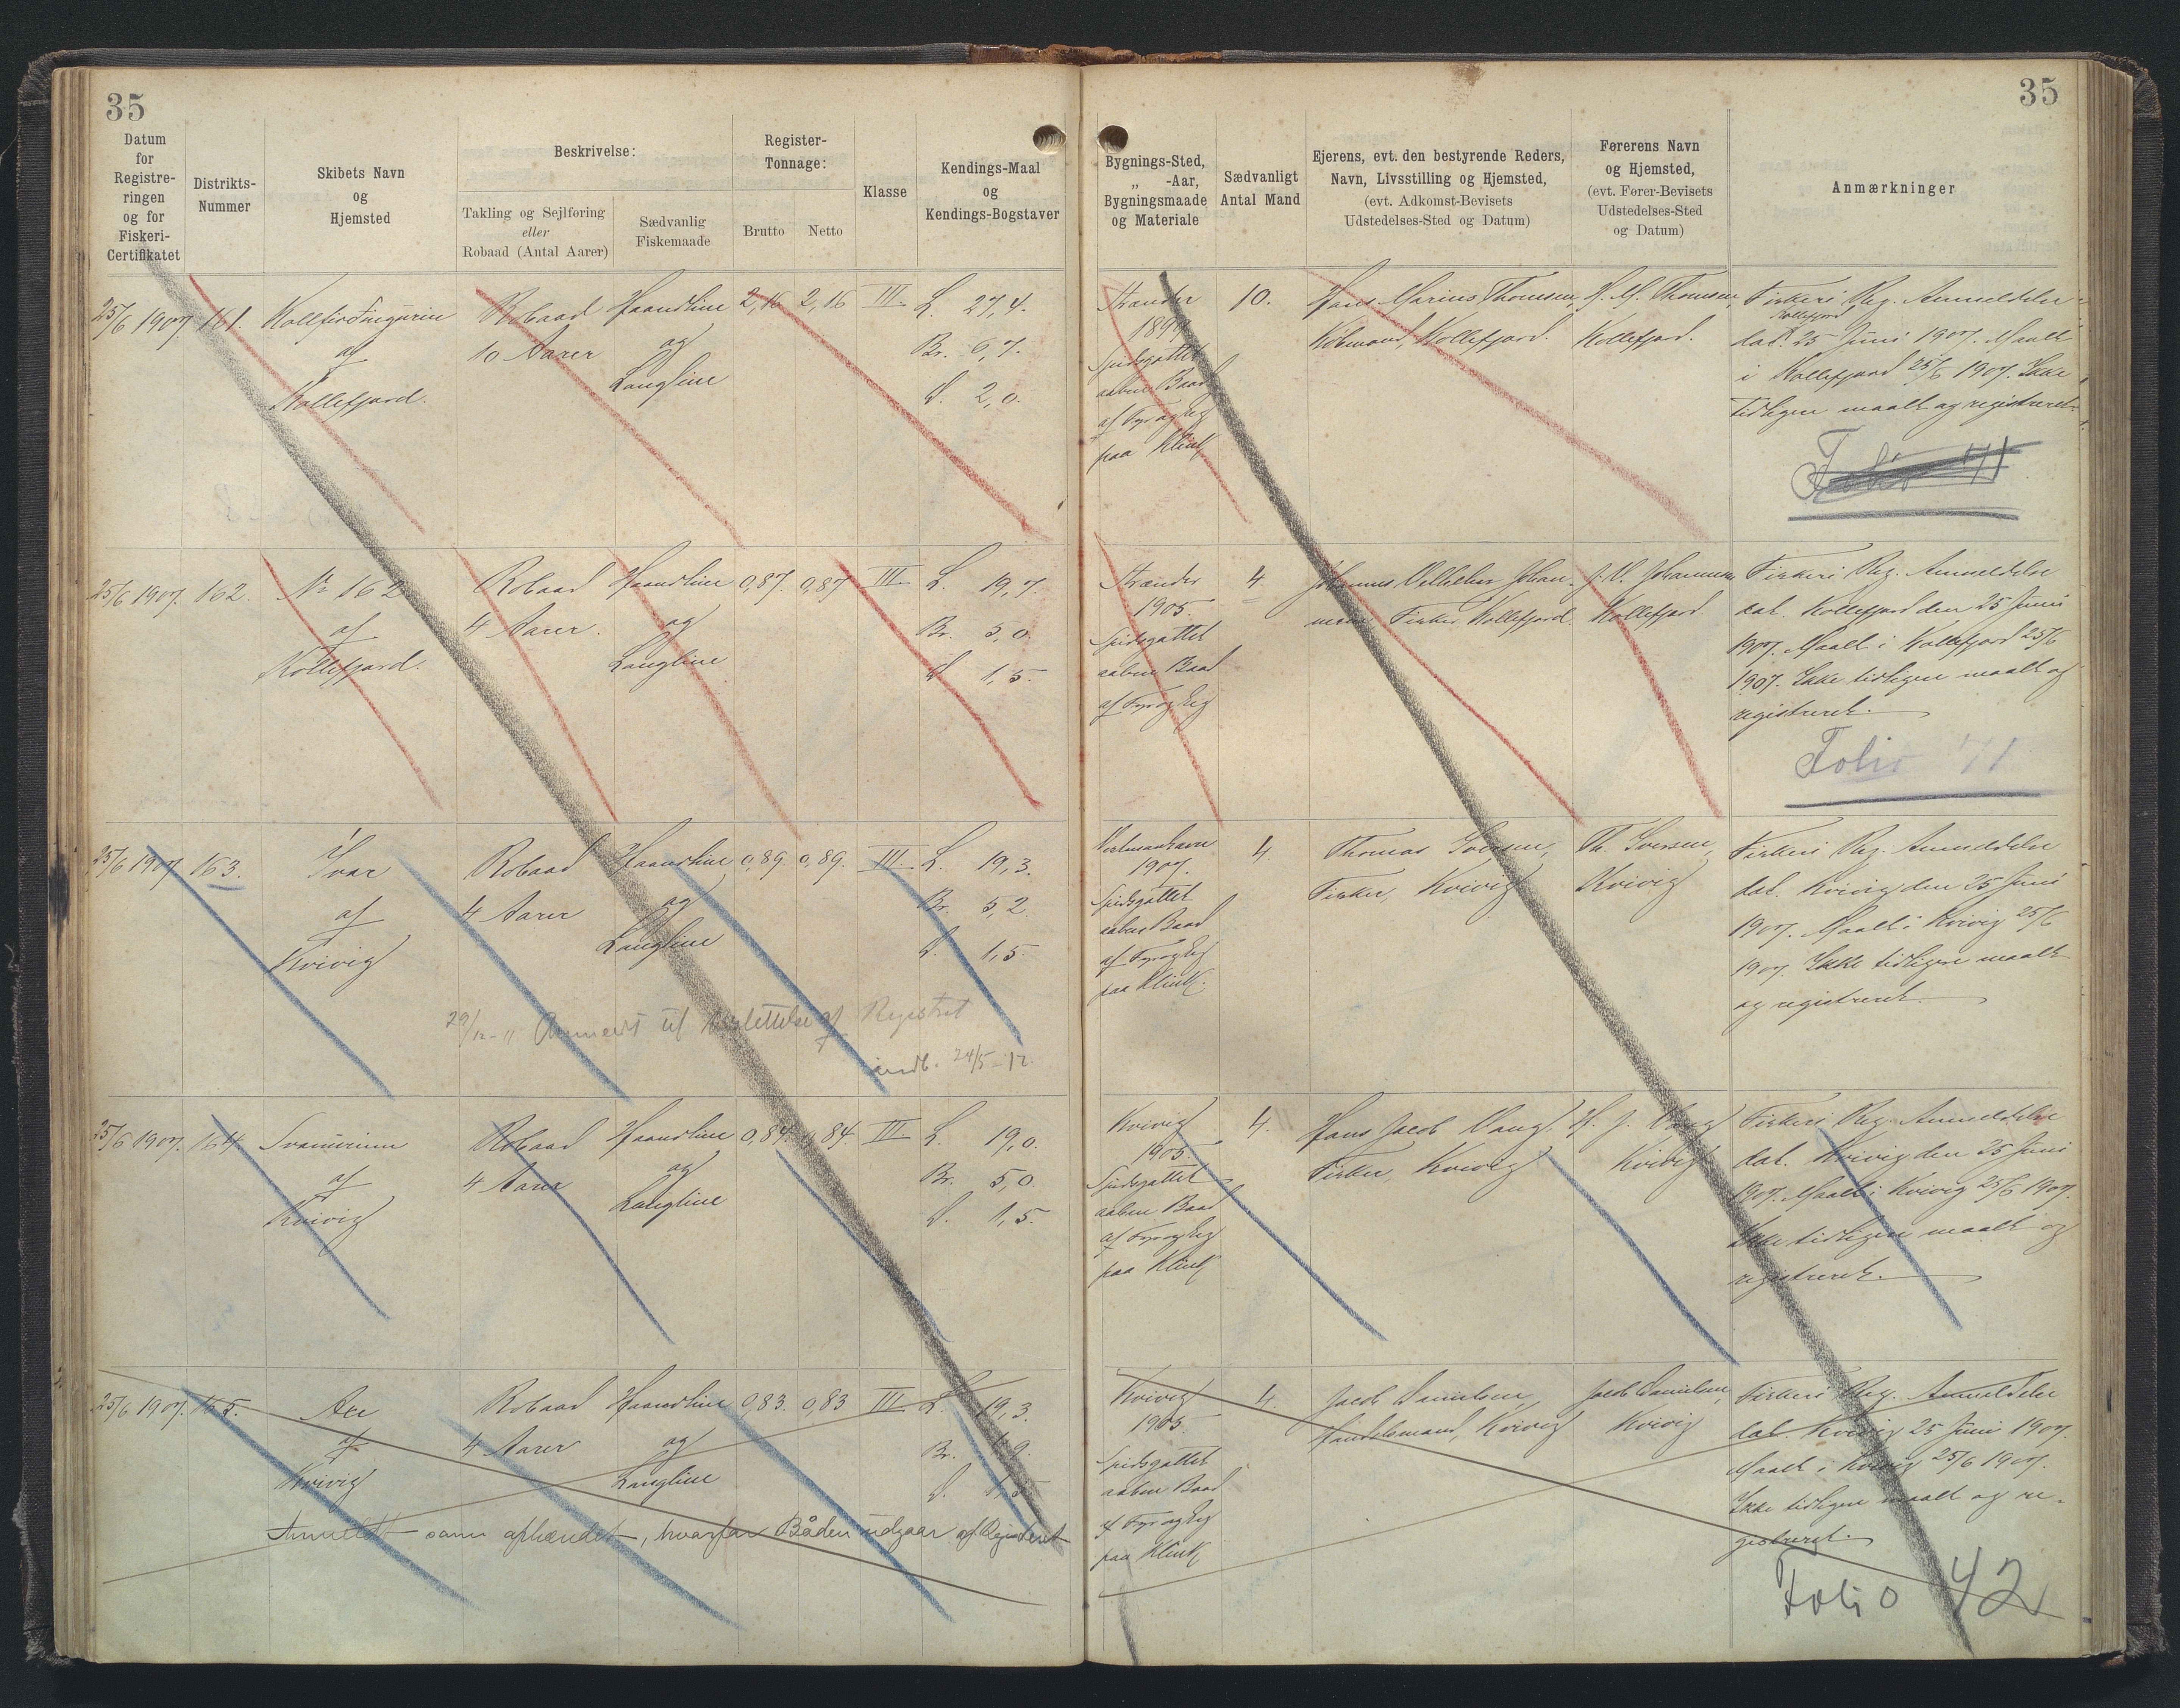 35
35
Datum
for
Registre-
ringen
og for
Fiskeri-
Certifikatet
Distrikts-
Nummer
Skibets Navn
og
Hjemsted
Beskrivelse:
Takling og Sejlføring
eller
Robaad (Antal Aarer)
Sædvanlig
Fiskemaade
Register-
Tonnage:
Brutto
Netto
Klasse
Kendings-Maal
og
Kendings-Bogstaver
Bygnings-Sted,
„ -Aar,
Bygningsmaade
og Materiale
Sædvanligt
Antal Mand
Ejerens, evt. den bestyrende Reders,
Navn, Livsstilling og Hjemsted,
(evt. Adkomst-Bevisets
Udstedelses-Sted og Datum)
Førerens Navn
og Hjemsted,
(evt. Fører-Bevisets
Udstedelses-Sted
og Datum)
Anmærkninger
25/6 1907. 161.
af
Kollefjord.
Robaad
10 Aarer
Haandline
og
Langline
2,16 2,16 III
L. 27,4.
Br. 6,7.
D. 2,0.
Spidsgattet
aaben Baad
af Fyr og Eg
paa Klink
10.
Hans Marius Thomsen,
Købmand, Kollefjord.
H. M. Thomsen,
Kollefjord.
Fiskeri Reg. Anmeldelse
Kollefjord
dat. 25 Juni 1907. Maalt
i Kollefjord 25/6 1907. Ikke
tidligere maalt og registreret.
Folio 71
25/6 1907. 162.
Nr 162
af
Kollefjord.
Robaad
4 Aarer.
Haandline
og
Langline
0,87. 0,87 III
L. 19,7.
Br. 5,0.
D. 1,5.
1905.
Spidsgattet
aaben Baad
af Fyr og Eg
4.
Johannes Vilhelm Johan-
nesen Fisker, Kollefjord.
J. V. Johannesen,
Kollefjord
Fiskeri Reg. Anmeldelse
dat. Kollefjord den 25 Juni
1907. Maalt i Kollefjord 25/6
1907. Ikke tidligere maalt og
registreret.
Folio 71
25/6 1907 163.
Ivar
af
Kvivig
Robaad
4 Aarer
Haandline
og
Langline
0,89. 0,89. III
L. 19,3.
Br. 5,2.
D. 1,5.
29/12-11 Anmeldt til Udslettelse af Registret
indb. 24/5-12.
Vestmanhavn
1907.
Spidsgattet
aaben Baad
af Fyr og Eg
paa Klink.
4.
Thomas Iversen,
Fisker, Kvivig
Th. Iversen,
Kvivig
Fiskeri Reg. Anmeldelse
dat. Kvivig den 25 Juni
1907. Maalt i Kvivig 25/6
1907. Ikke tidligere maalt
og registreret.
25/6 1907. 164
af
Kvivig
Robaad
4 Aarer
Haandline
og
Langline
0,84. 0,84. III
L. 19,0.
Br. 5,0.
D. 1,5.
Kvivig
1905.
Spidsgattet
aaben Baad
af Fyr og Eg
paa Klink
4.
Hans Jacob Vang.
Fisker, Kvivig
H. J. Vang
Kvivig
Fiskeri Reg. Anmeldelse
dat. Kvivig den 25 Juni
1907. Maalt i Kvivig 25/6 1907.
Ikke tidligere maalt og
registreret.
25/6 1907. 165.
af
Kvivig
Robaad
4 Aarer
Haandline
og
Langline
0,83. 0,83 III
L. 19,3.
Br. 4,9.
D. 1,5
Anmeldt som afhændet, hvorfor Båden udgaar af Registret
Kvivig
1905.
Spidsgattet
aaben Baad
af Fyr og Eg
paa Klink
4.
Jacob Danielsen,
Handelsmand, Kvivig
Jacob Danielsen,
Kvivig
Fiskeri Reg. Anmeldelse
dat. Kvivig 25 Juni 1907.
Maalt i Kvivig 25/6 1907.
Ikke tidligere maalt og re-
gistreret.
Folio 42